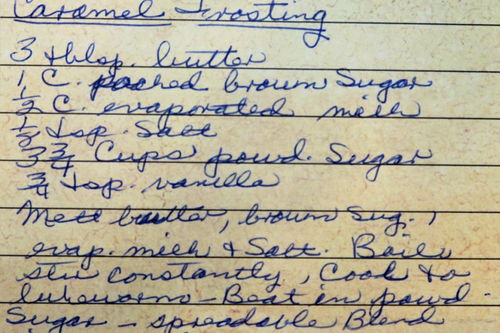 Caramel Frosting
3 tblsp. butter
1 C. packed brown Sugar
1/2 C. evaporated milk
1/8 tsp. Salt
3 3/4 Cups powd. Sugar
3/4 tsp. vanilla
Melt butter, brown Sug.,
evap. milk & Salt. Boil,
stir constantly, Cool to
lukewarm - Beat in powd.
Sugar - spreadable Blend